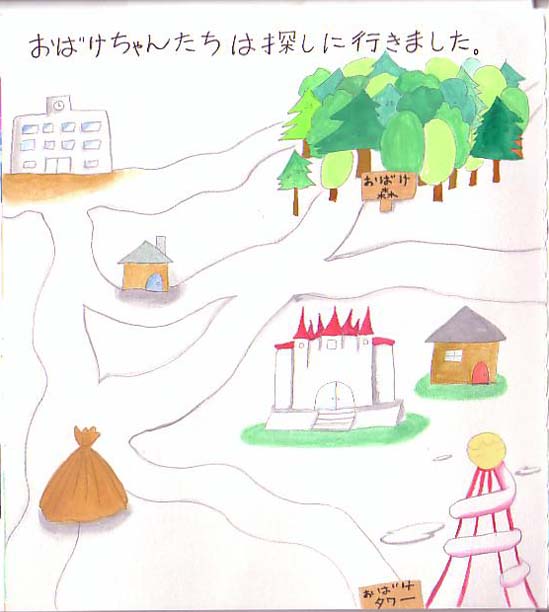 おばけちゃんたちは探しに行きました。
おばけ
森
おばけ
タワー